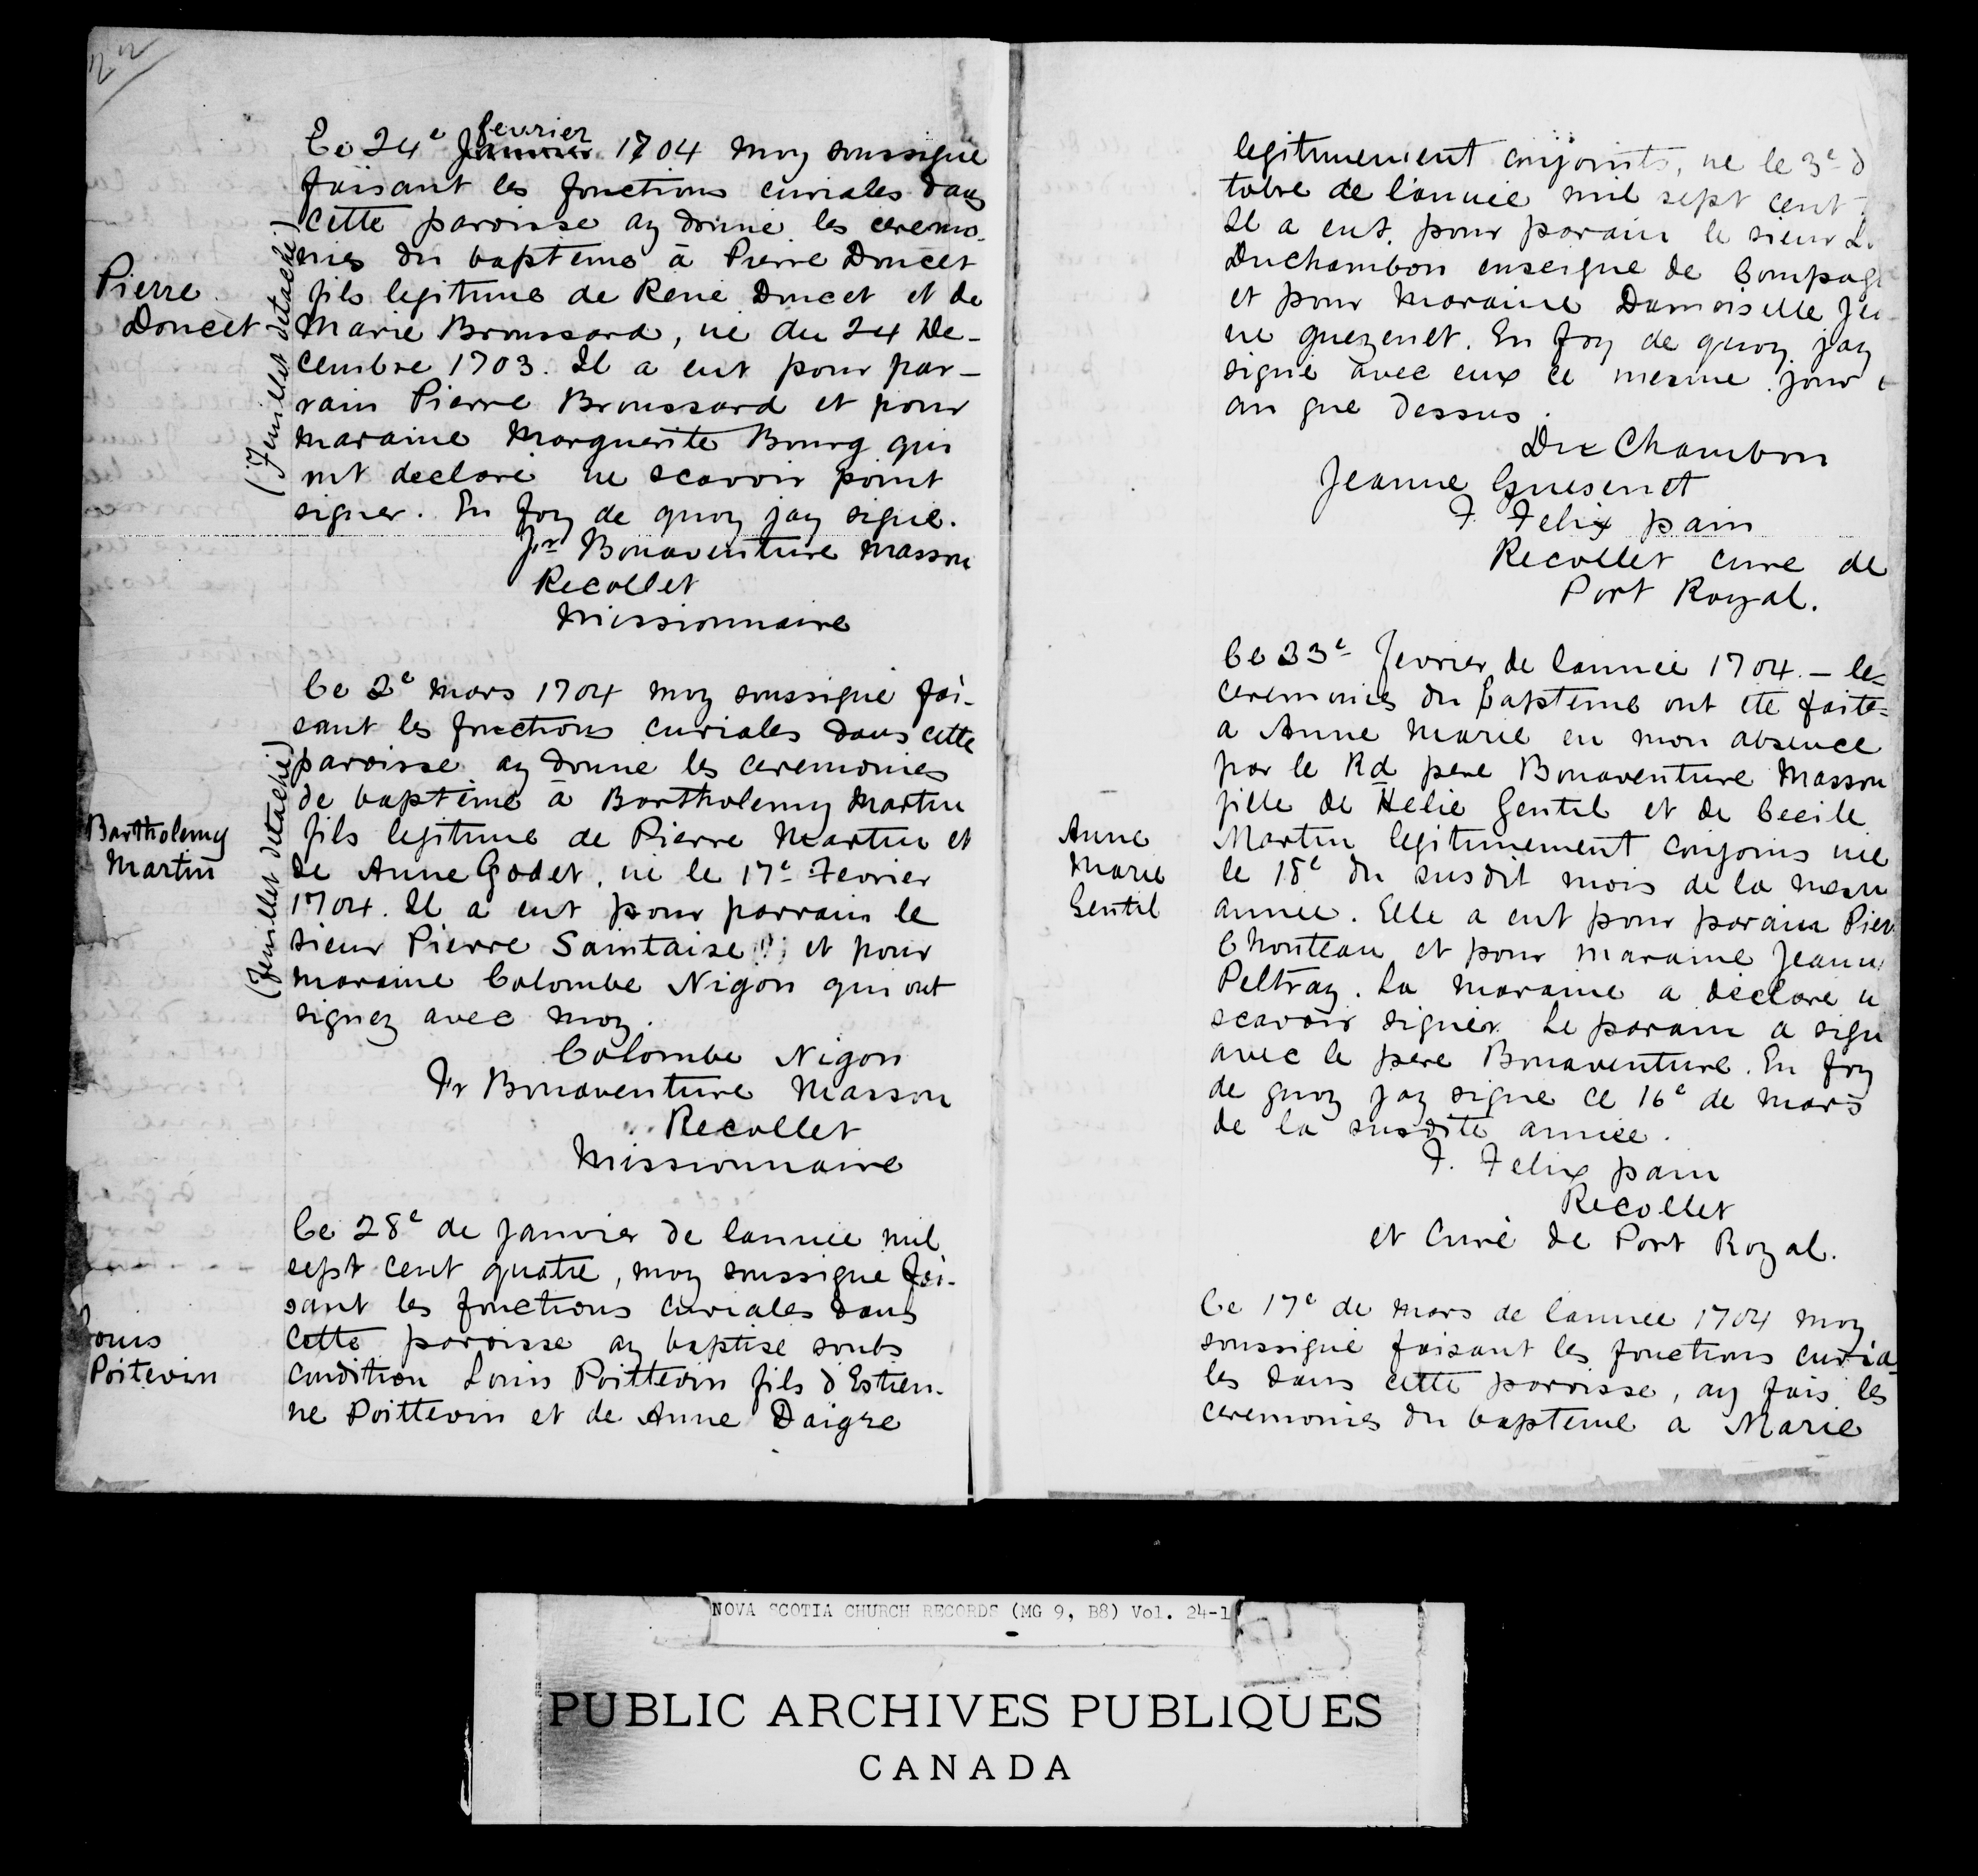 22
Ce 24e Janvier fevrier 1704 moy soussigné
faisant les fonctions curiales dans
cette paroisse ay donné les ceremo-
nies du baptême à Pierre Doucet
fils legitime de René Doucet et de
Marie Broussard, né du 24 De-
cembre 1703. Il a eut pour par-
rain Pierre Broussard et pour
maraine Marguerite Bourg qui
ont declaré ne scavoir point
signer. En foy de quoy jay signé.
fr Bonaventure Masson
Recollet
Missionnaire
Pierre
Doucet
(feuillet detaché)
Ce 2e mars 1704 moy soussigné fai-
sant les fonctions curiales dans cette
paroisse ay donné les ceremonies
de baptême à Bartholemy Martin
fils legitime de Pierre Martin et
de Anne Godet, né le 17e Fevrier
1704. Il a eut pour parrain le
sieur Pierre Saintaise (?) et pour
maraine Colombe Nigon qui ont
signez avec moy.
Colombe Nigon
Fr Bonaventure Masson
Recollet
Missionnaire
Bartholemy
Martin
(feuillet detaché)
Ce 28e de janvier de lannée mil
sept cent quatre, moy soussigné fai-
sant les fonctions curiales dans
cette paroisse ay baptisé soubs
condition Louis Poittevin fils d'Estien-
ne Poittevin et de Anne Daigre
Louis
Poitevin
legitimement conjoints, né le 3e
tobre de l'année mil sept cent
Il a eut pour parain le sieur
Duchambon enseigne de Compag
et pour maraine Damoiselle Jea-
ne guezenet. En foy de quoy jay
signé avec eux ce mesme jour
an que dessus.
Du Chambon
Jeanne Guesenet
F. Felix pain
Recollet curé de
Port Royal.
Ce 33e fevrier de lannée 1704. – les
ceremonies du baptême ont été faites
a Anne Marie en mon absence
par le Rd pere Bonaventure Masson
fille de Helie Gentil et de Cecile
Martin legitimement conjoins née
le 18e du susdit mois de la mesm
année. Elle a eut pour parain Pier
Chouteau et pour maraine Jeann
Peltray. La maraine a declaré n
scavoir signer. Le parain a sign
avec le pere Bonaventure. En foy
de quoy jay signé ce 16e de mars
de la susdite année.
F. Felix pain
Recollet
et Curé de Port Royal.
Anne
Marie
Gentil
Ce 17e de mars de lannée 1704 moy
soussigné faisant les fonctions curia-
les dans cette paroisse, ay fais les
ceremonies du baptême a Marie
NOVA SCOTIA CHURCH RECORDS (MG 9, B8) Vol. 24-1
PUBLIC ARCHIVES PUBLIQUES
CANADA